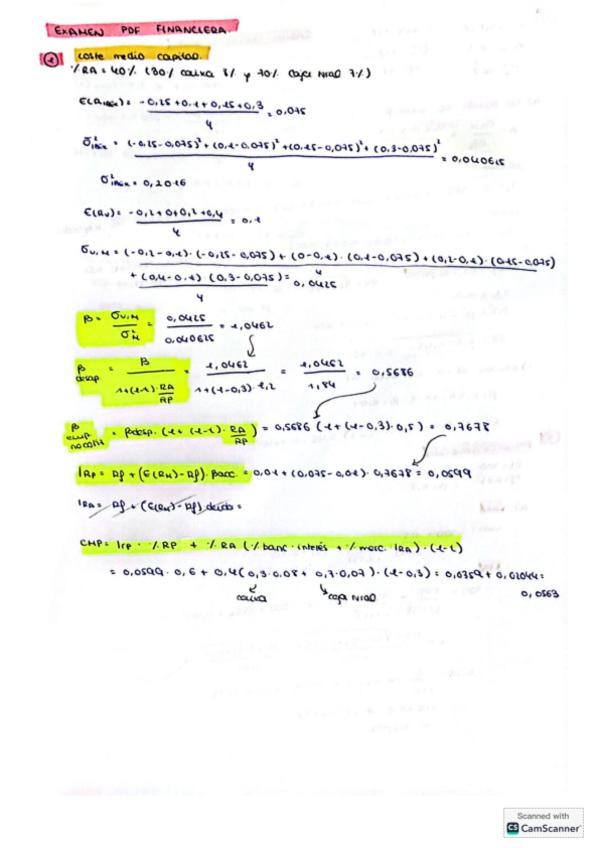 EXAMEN PDF FINANCIERA
① coste medio capital.
% RA = 40% (30% caixa 8% y 70% caja Nrad 7%)
E(RIBEX) = -0,25+0,1+0,15+0,3 / 4 = 0,075
σ²IBEX = (-0,25-0,075)²+(0,1-0,075)²+(0,15-0,075)²+(0,3-0,075)² / 4 = 0,040625
σ²IBEX = 0,2016
E(RV) = -0,2+0+0,2+0,4 / 4 = 0,1
σV,M = (-0,2-0,1)·(-0,25-0,075)+(0-0,1)·(0,1-0,075)+(0,2-0,1)·(0,15-0,075)
+(0,4-0,1)(0,3-0,075) / 4 = 0,0425
β = σV,M / σ²M = 0,0425 / 0,040625 = 1,0462
β desap. = β / 1+(1-t)·RA/RP = 1,0462 / 1+(1-0,3)·1,2 = 1,0462 / 1,84 = 0,5686
β emp no cotiz = βdesp. (1+(1-t)·RA/RP) = 0,5686(1+(1-0,3)·0,5) = 0,7678
IRP = Rf+(E(RM)-Rf)·βacc. = 0,01+(0,075-0,01)·0,7678 = 0,0599
IRA = Rf+(E(RM)-Rf) deuda =
CMP = Irp · % RP + % RA (% banc · interés + % merc. IRA)·(1-t)
= 0,0599·0,6+0,4(0,3·0,08+0,7·0,07)·(1-0,3) = 0,0359+0,02044 =
0,0563
caixa
caja Nrad
Scanned with
CS CamScanner